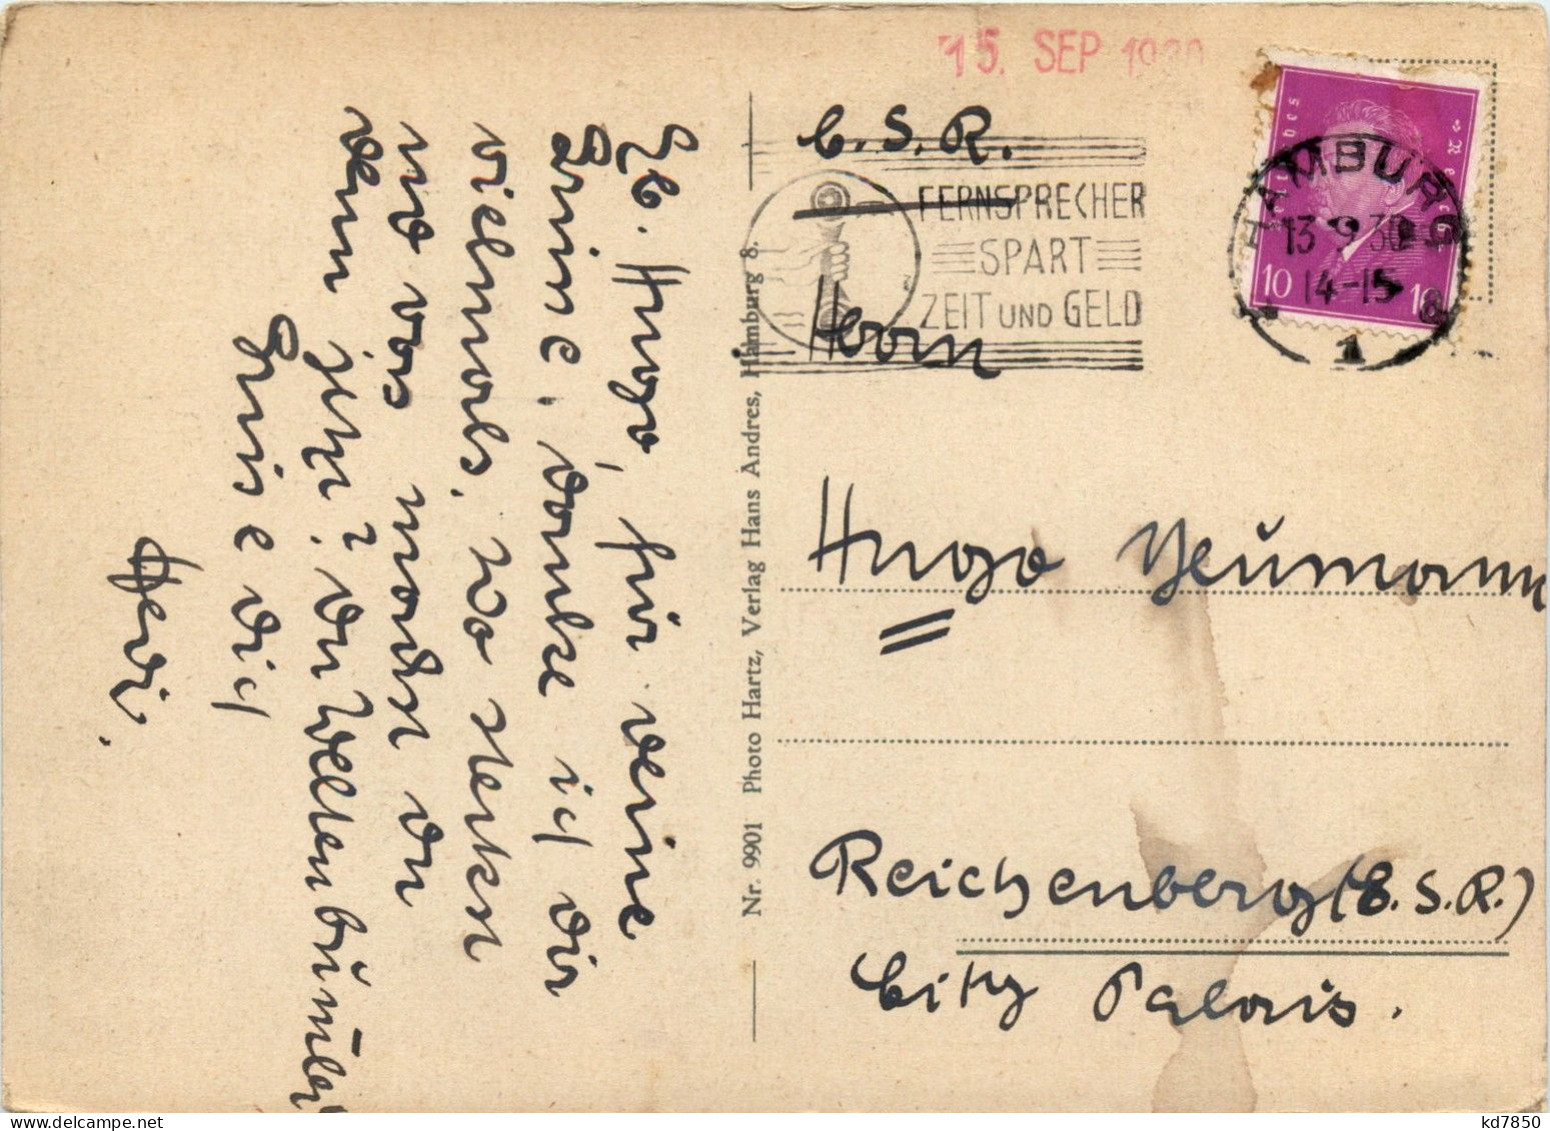 Lb. Hugo, für deine
Grüne, danke ich dir
vielmals. Wo steckst
und was machst du
denn jetzt? du Weltenbummler
Grüsse dich
Hedi.
Nr. 9901 Photo Hartz, Verlag Hans Andres, Hamburg 8.
15. SEP 1930
C.S.R.
FERNSPRECHER
SPART
ZEIT UND GELD
HAMBURG
13.9.30
14-15
1
10 10
Herrn
Hugo Neumann
Reichenberg (C.S.R.)
City Palais.
kd7850